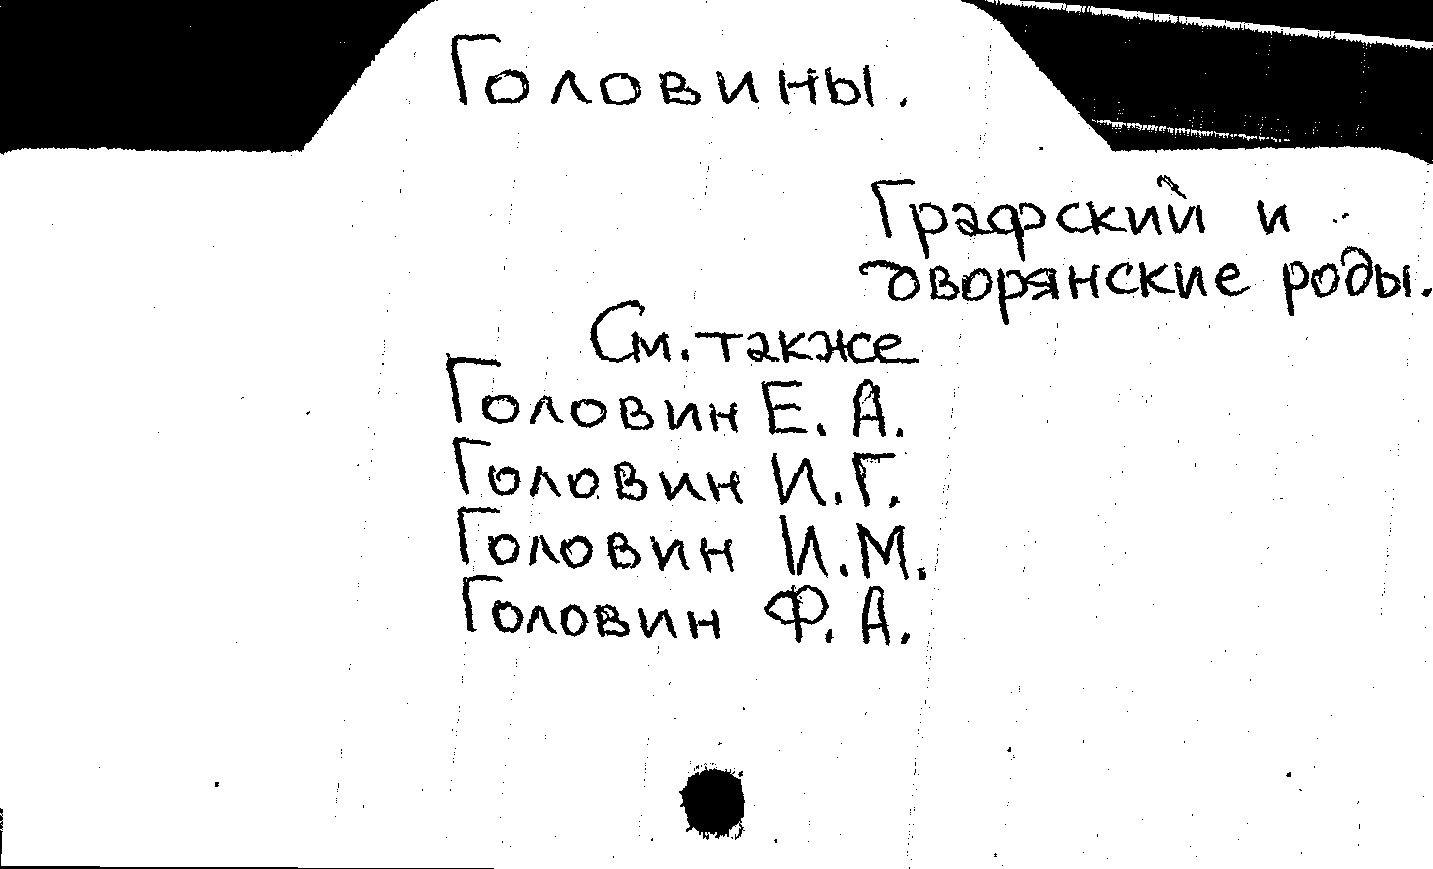 Головины.
Графский и
дворянские роды.
См. также
Головин Е. А.
Головин И. Г.
Головин И. М.
Головин Ф. А.